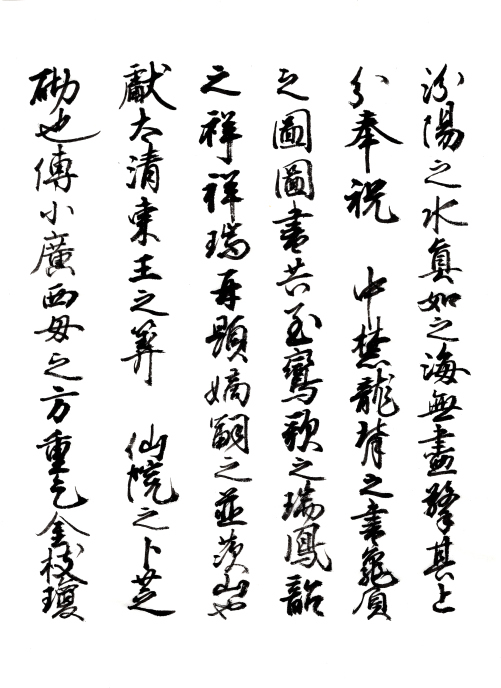 汾陽之水真如之海無盡擎其上
分奉祝 中禁龍之書龜負
之圖圖書共至鸞歌之瑞鳳韶
之祥祥瑞再顕嫡嗣之並茨山也
獻太清東王之算 仙院之卜芝
砌也傳小廣西母之方重乞金枝瓊